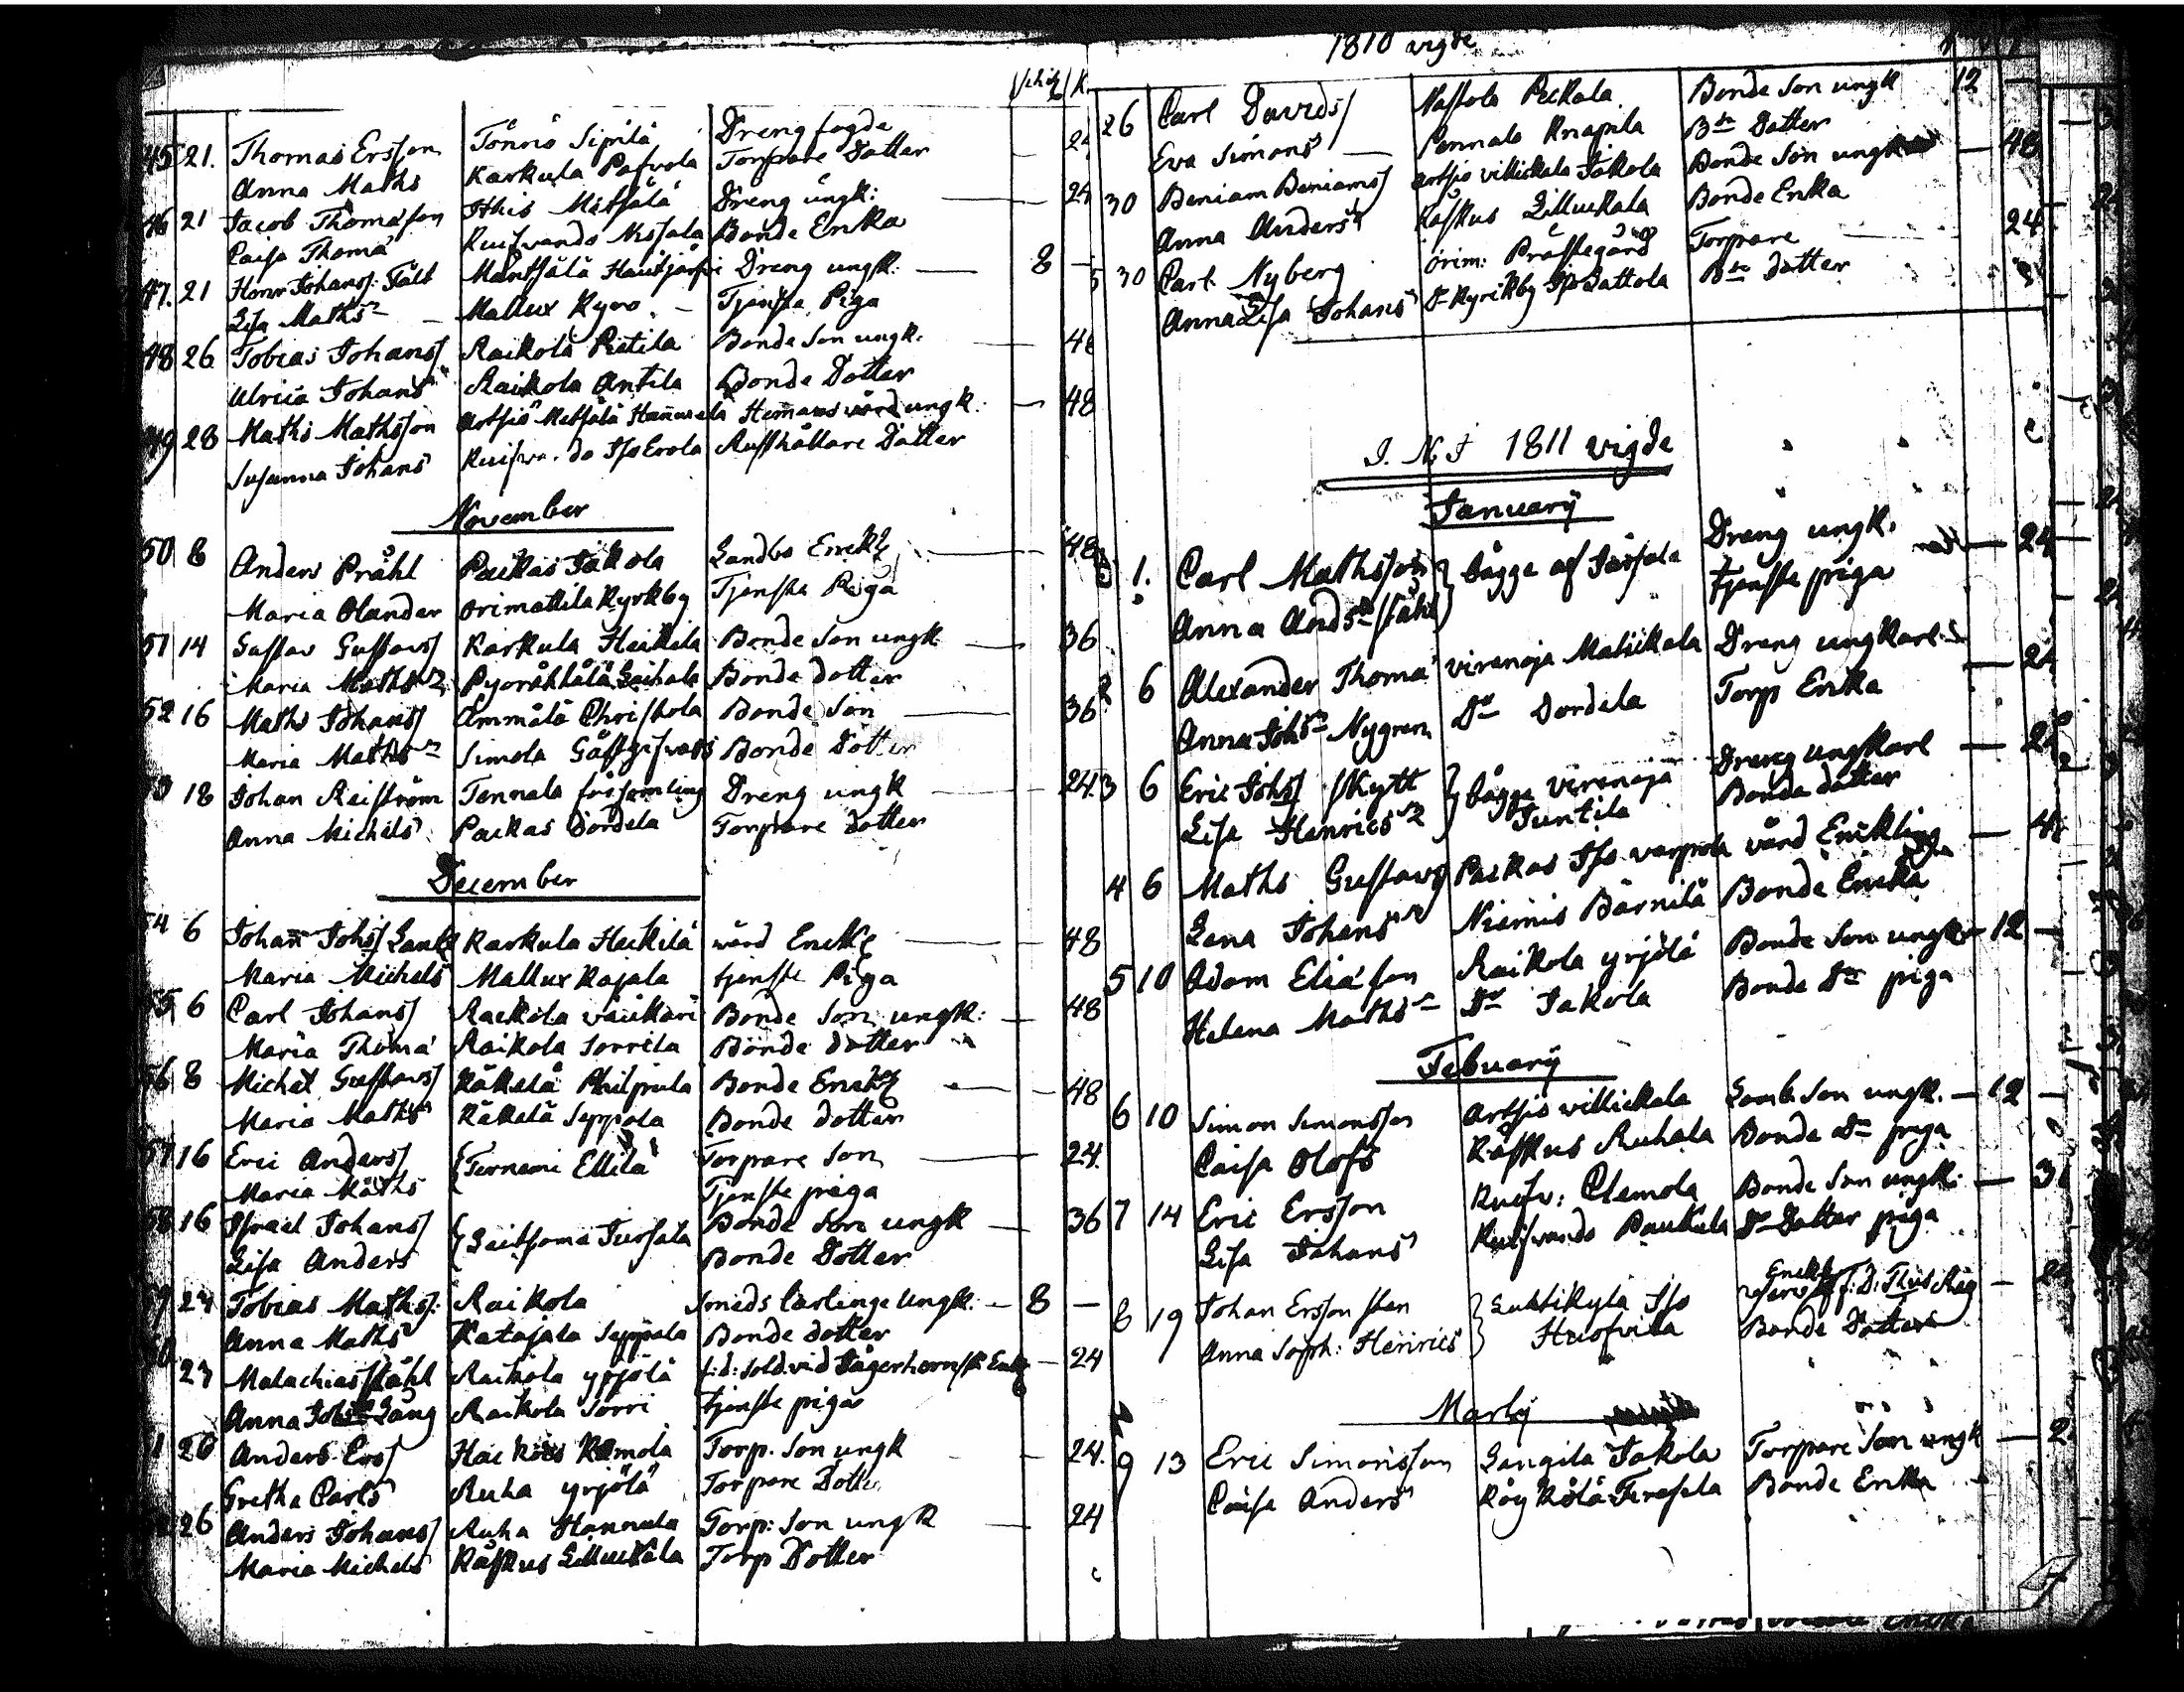 45 21. Thomas Ersson Tönnö Sipilä Dreng fogde — 24
Anna Maths Karkula Pafvola Torpare Dotter
46 21 Jacob Thomasson Ithis Mätsälä Dreng ungk: — 24
Caisa Thoma Kuifvando Nissala Bonde Enka
47. 21 Henr Johanss: Fält Mäntsälä Hautjärfvi Dreng ungk: — 8 —
Lisa Maths Mallux Kyro Tjenste Piga
48 26 Tobias Johanss Raikola Pietila Bonde Son ungk. — 48
Ulrica Johans Raikola Antila Bonde Dotter
49 28 Maths Mathsson Artsiö Metsälä Hannuela Hemans värd ungk. — 48
Susanna Johans Kuifva.do Iso Erola Rusthållare Dotter
November
50 8 Anders Pråhl Paikas Jakola Landbo Enkl — 48
Maria Olander Orimattila Kyrkby Tjenste Piga
51 14 Gustav Gustavss Karkula Heikilä Bonde Son ungk — 36
Maria Maths Pyoråhtälä Laihala Bonde dotter
52 16 Maths Johanss Ämmälä Christola Bonde Son — 36
Maria Maths Simola Gästgifvars Bonde Dotter
53 18 Johan Reiström Tennala församling Dreng ungk — 24.
Anna Michels Paikas Dordela Torpare dotter
December
54 6 Johan Johss Karkula Heikilä värd Enkl — 48
Maria Michels Mallux Kajala tjenste Piga
55 6 Carl Johanss Raikola väikäri Bonde Son ungk: — 48
Maria Thoma Raikola Sorrila Bonde dotter
56 8 Michel Gustavss Käkelä Philpula Bonde Enkl — 48
Maria Maths Käkelä Seppola Bonde dotter
57 16 Eric Anderss { Terneni Ellilä Torpare Son — 24.
Maria Maths Tjenste piga
58 16 Israel Johanss { Laitsoma Tursala Bonde Son ungk — 36
Lisa Anders Bonde Dotter
59 24 Tobias Mathss: Raikola Smeds lärlinge ungk. — 8 —
Anna Maths Katajala Seppala Bonde dotter
60 23 Malachias Ståhl Raikola yrjölä f:d: Sold. vid Jägerhornsk — 24
Anna Lång Raikola Sorri tjenste piga
61 26 Anders Erss Torp. Son ungk — 24.
Gretha Carls Ruha yrjölä Torpare Dotter
26 Anders Johanss Ruha Hannula Torp: Son ungk — 24
Maria Michels Käskus Lilluckala Torp Dotter
1810 vigde
26 Carl Davidss Nastola Peckola Bonde Son ungk 12
Eva Simons — Pennala Knapila Dn Dotter
30 Beniam Beniamss Artsio villickala Jakola Bonde Son ungk — 48
Anna Anders Käskus Lilluckala Bonde Enka
5 30 Carl Nyberg Orim: Prästegård Torpare — 24
Anna Lisa Johans Dn Kyrkby Iso Dn dotter
I. N. J 1811 vigde
Januarij
1. Carl Mathsson } bägge af Dreng ungk. — 24
Anna And.s Ståhl tjenste piga
2 6 Alexander Thoma virenoja Matickala Dreng ungkarl — 24
Anna Johs Nygren Dn Dordela Torp Enka
3 6 Eric Johss Skytt } bägge virenoja Dreng ungkarl — 24
Lisa Henrics Juntila Bonde dotter
4 6 Maths Gustavss Paikas Iso varpola värd Enkling — 48
Lena Johans Niemis Bärnilä Bonde Enka
5 10 Adam Eliasson Raikola yrjölä Bonde Son ungk — 12 —
Helena Maths Dn Jakola Bonde Dn piga
Februarij
6 10 Simon Simonsson Artsio villickala Landb Son ungk. — 12 —
Caisa Olofs Käskus Ruhala Bonde Dn piga
7 14 Eric Ersson Kuifv: Clemola Bonde Son ungk: — 36
Lisa Johans Kuifvando Paukula Dn Dotter piga
8 19 Johan Ersson } Luhtikylä Iso Enkl f:d: — 24
Anna Soph: Henrics Bonde Dotter
Martij
9 13 Eric Simonsson Langila Jakola Torpare Son ungk — 2
Caisa Anders Köykölä Bonde Enka